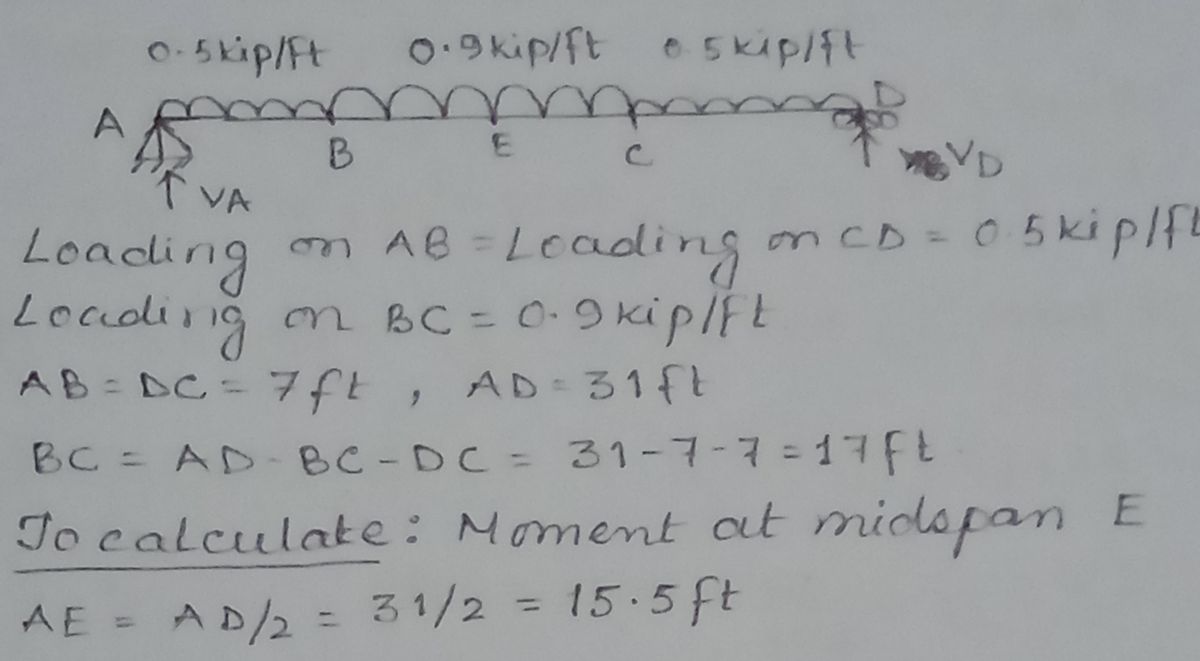 0.5kip/ft 0.9kip/ft 0.5kip/ft
A D
B E C
VA VD
Loading on AB = Loading on CD = 0.5kip/ft
Loading on BC = 0.9kip/ft
AB = DC = 7ft , AD = 31ft
BC = AD - BC - DC = 31-7-7 = 17ft
To calculate: Moment at midspan E
AE = AD/2 = 31/2 = 15.5ft